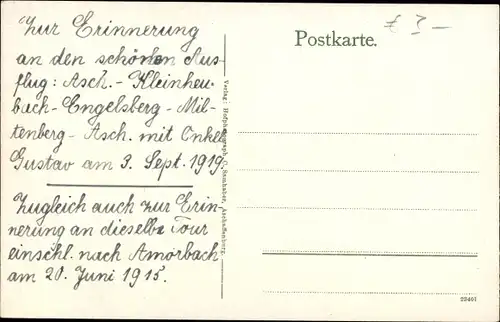 Zur Erinnerung
an den schönen Aus-
flug: Asch.- Kleinheu-
bach-Engelsberg-Mil-
tenberg-Asch. mit Onkel
Gustav am 3. Sept. 1919.
Zugleich auch zur Erin-
nerung an dieselbe Tour
einschl. nach Amorbach
am 20. Juni 1915.
Verlag: Hofphotograph C. Samhaber, Aschaffenburg.
€ 3-
Postkarte.
22461